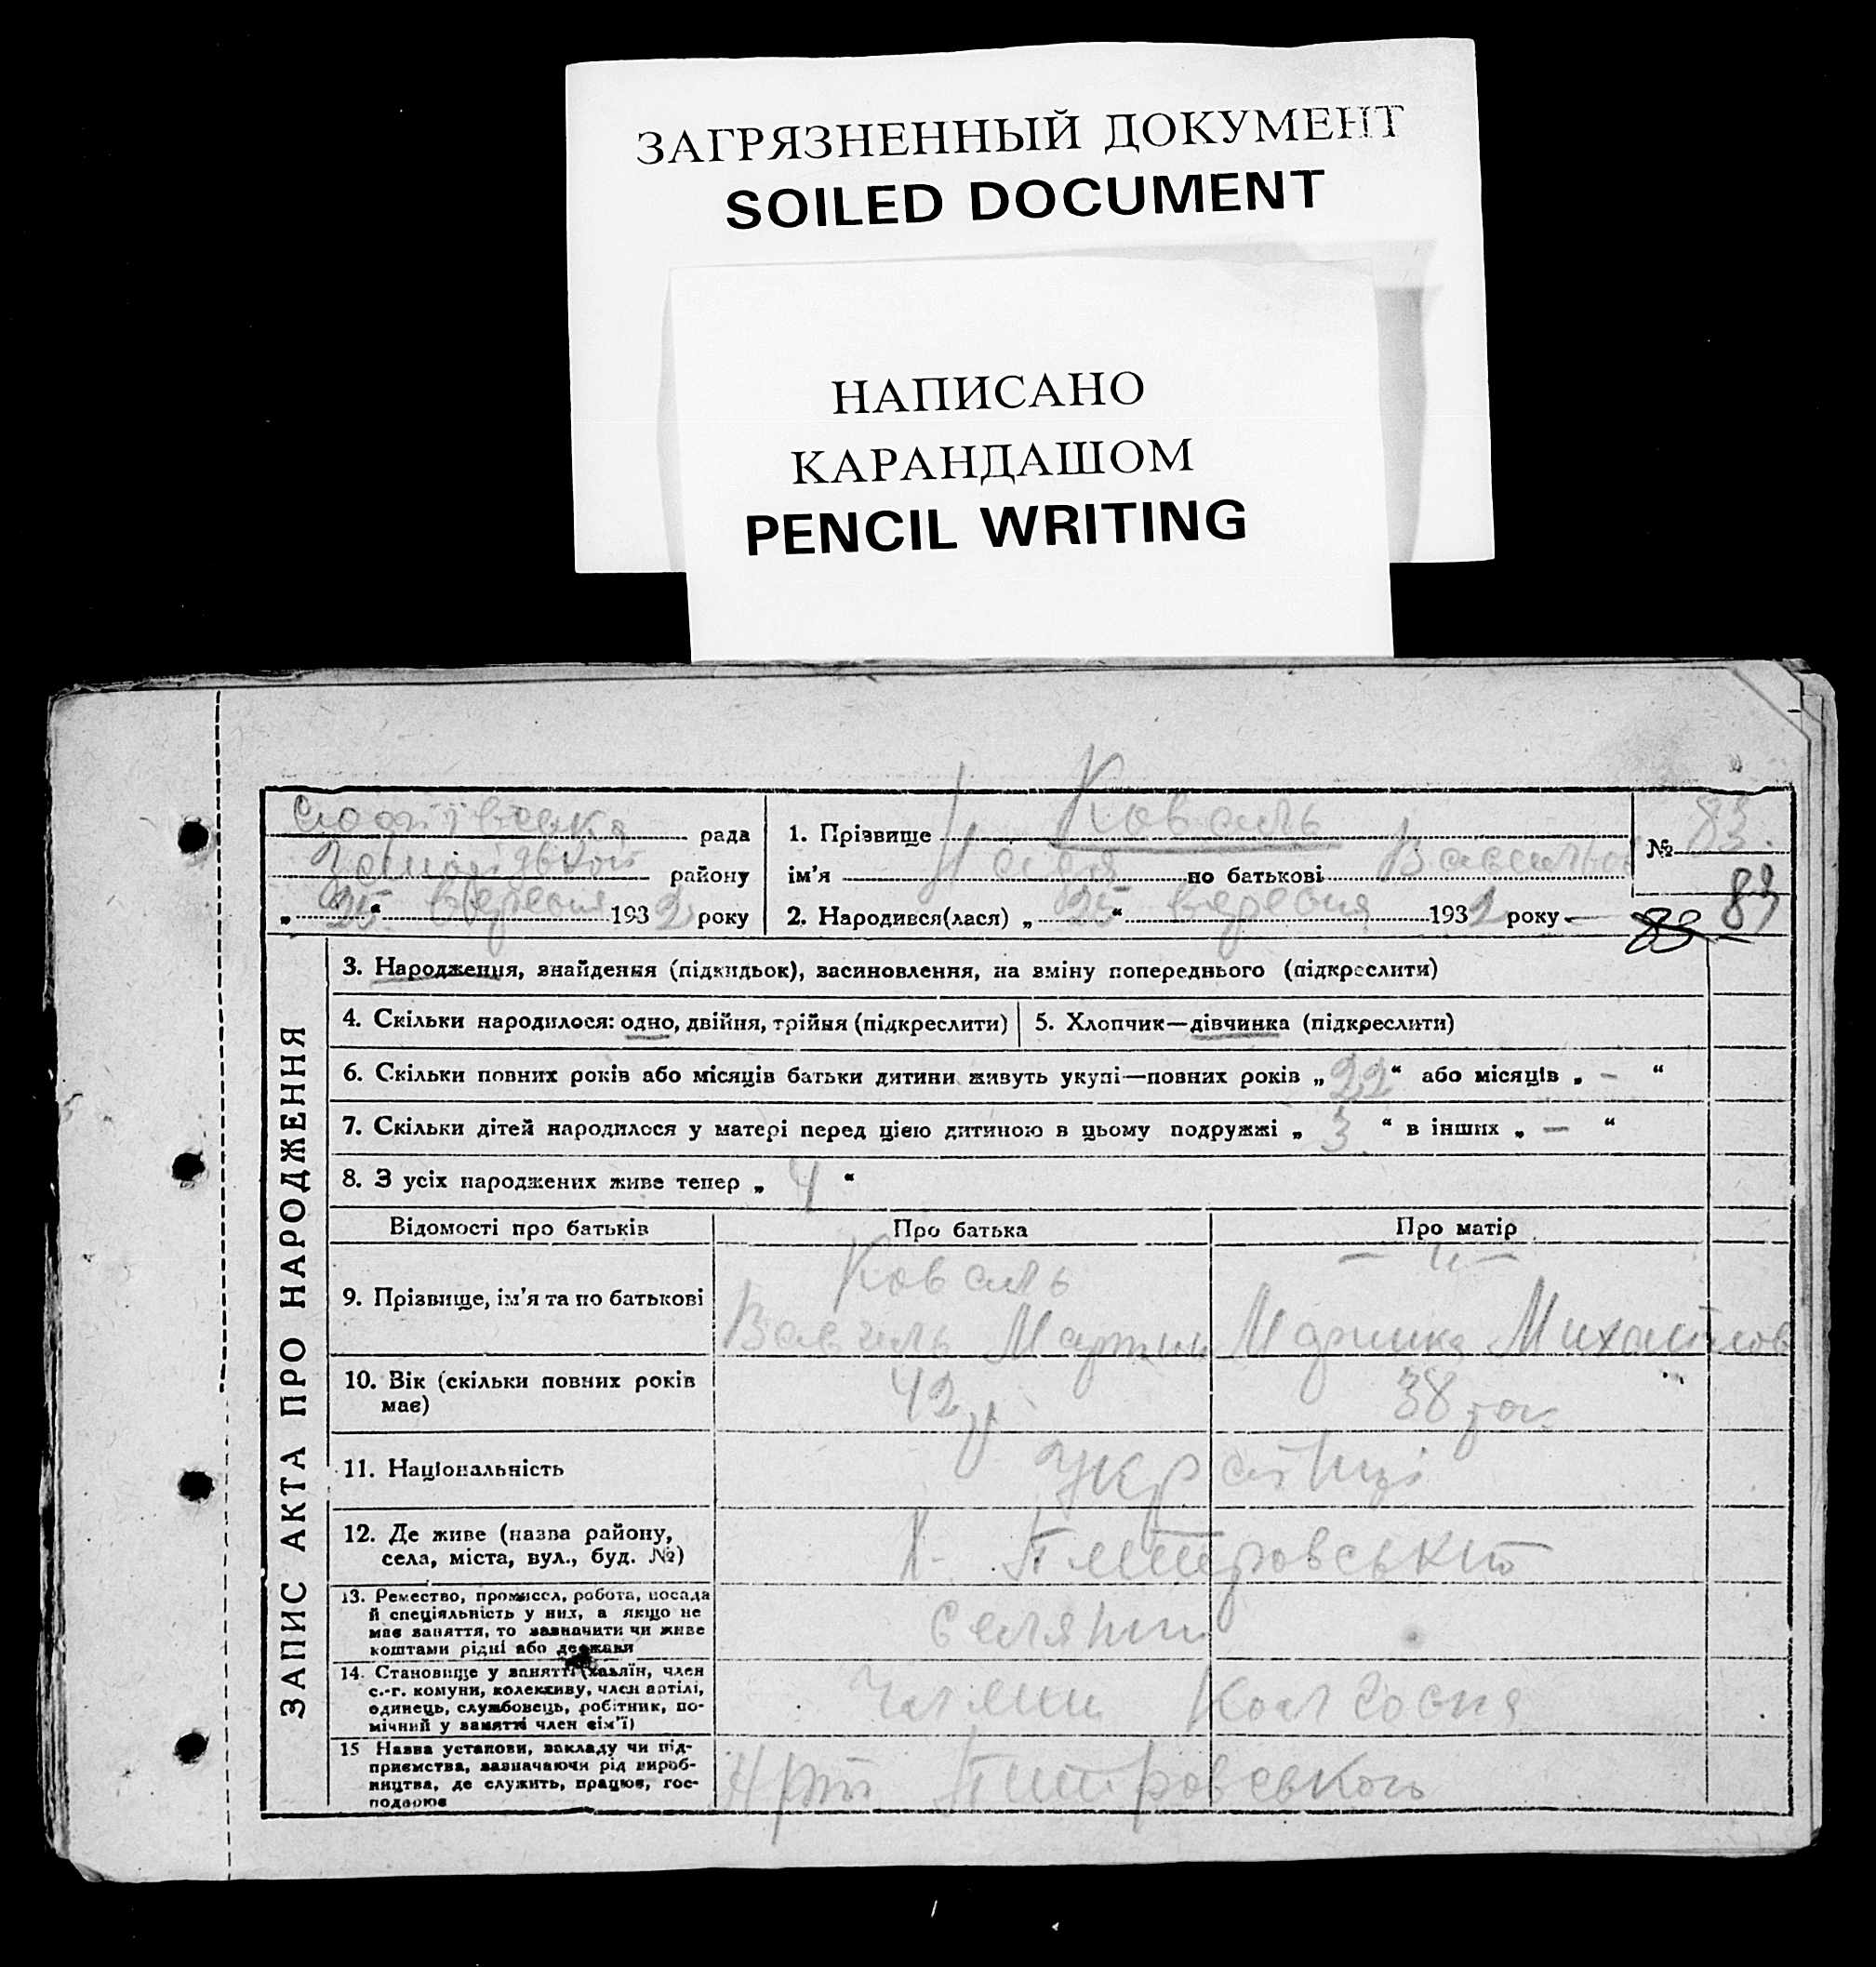 ЗАГРЯЗНЕННЫЙ ДОКУМЕНТ
SOILED DOCUMENT
НАПИСАНО
КАРАНДАШОМ
PENCIL WRITING
рада
району
„ 25 “ вересня 1932 року
1. Прізвище Коваль
ім'я по батькові
2. Народився(лася) „ 25 “ вересня 1932 року
№ 83.
83
83
ЗАПИС АКТА ПРО НАРОДЖЕННЯ
3. Народження, знайдення (підкидьок), засиновлення, на зміну попереднього (підкреслити)
4. Скільки народилося: одно, двійня, трійня (підкреслити)
5. Хлопчик—дівчинка (підкреслити)
6. Скільки повних років або місяців батьки дитини живуть укупі—повних років „ 22 “ або місяців „ — “
7. Скільки дітей народилося у матері перед цією дитиною в цьому подружжі „ 3 “ в інших „ — “
8. З усіх народжених живе тепер „ 4 “
Відомості про батьків
Про батька
Про матір
9. Прізвище, ім'я та по батькові
Коваль
— " —
10. Вік (скільки повних років
має)
42
38
11. Національність
Українці
12. Де живе (назва району,
села, міста, вул., буд. №)
13. Ремество, промисел, робота, посада
й спеціяльність у них, а якщо не
має заняття, то зазначити чи живе
коштами рідні або держави
селянин
14. Становище у занятті (хазяїн, член
с.-г. комуни, колективу, член артілі,
одинець, службовець, робітник, по-
мічний у занятті член сім'ї)
15 Назва установи, закладу чи під-
приємства, зазначаючи рід вироб-
ництва, де служить, працює, гос-
подарює